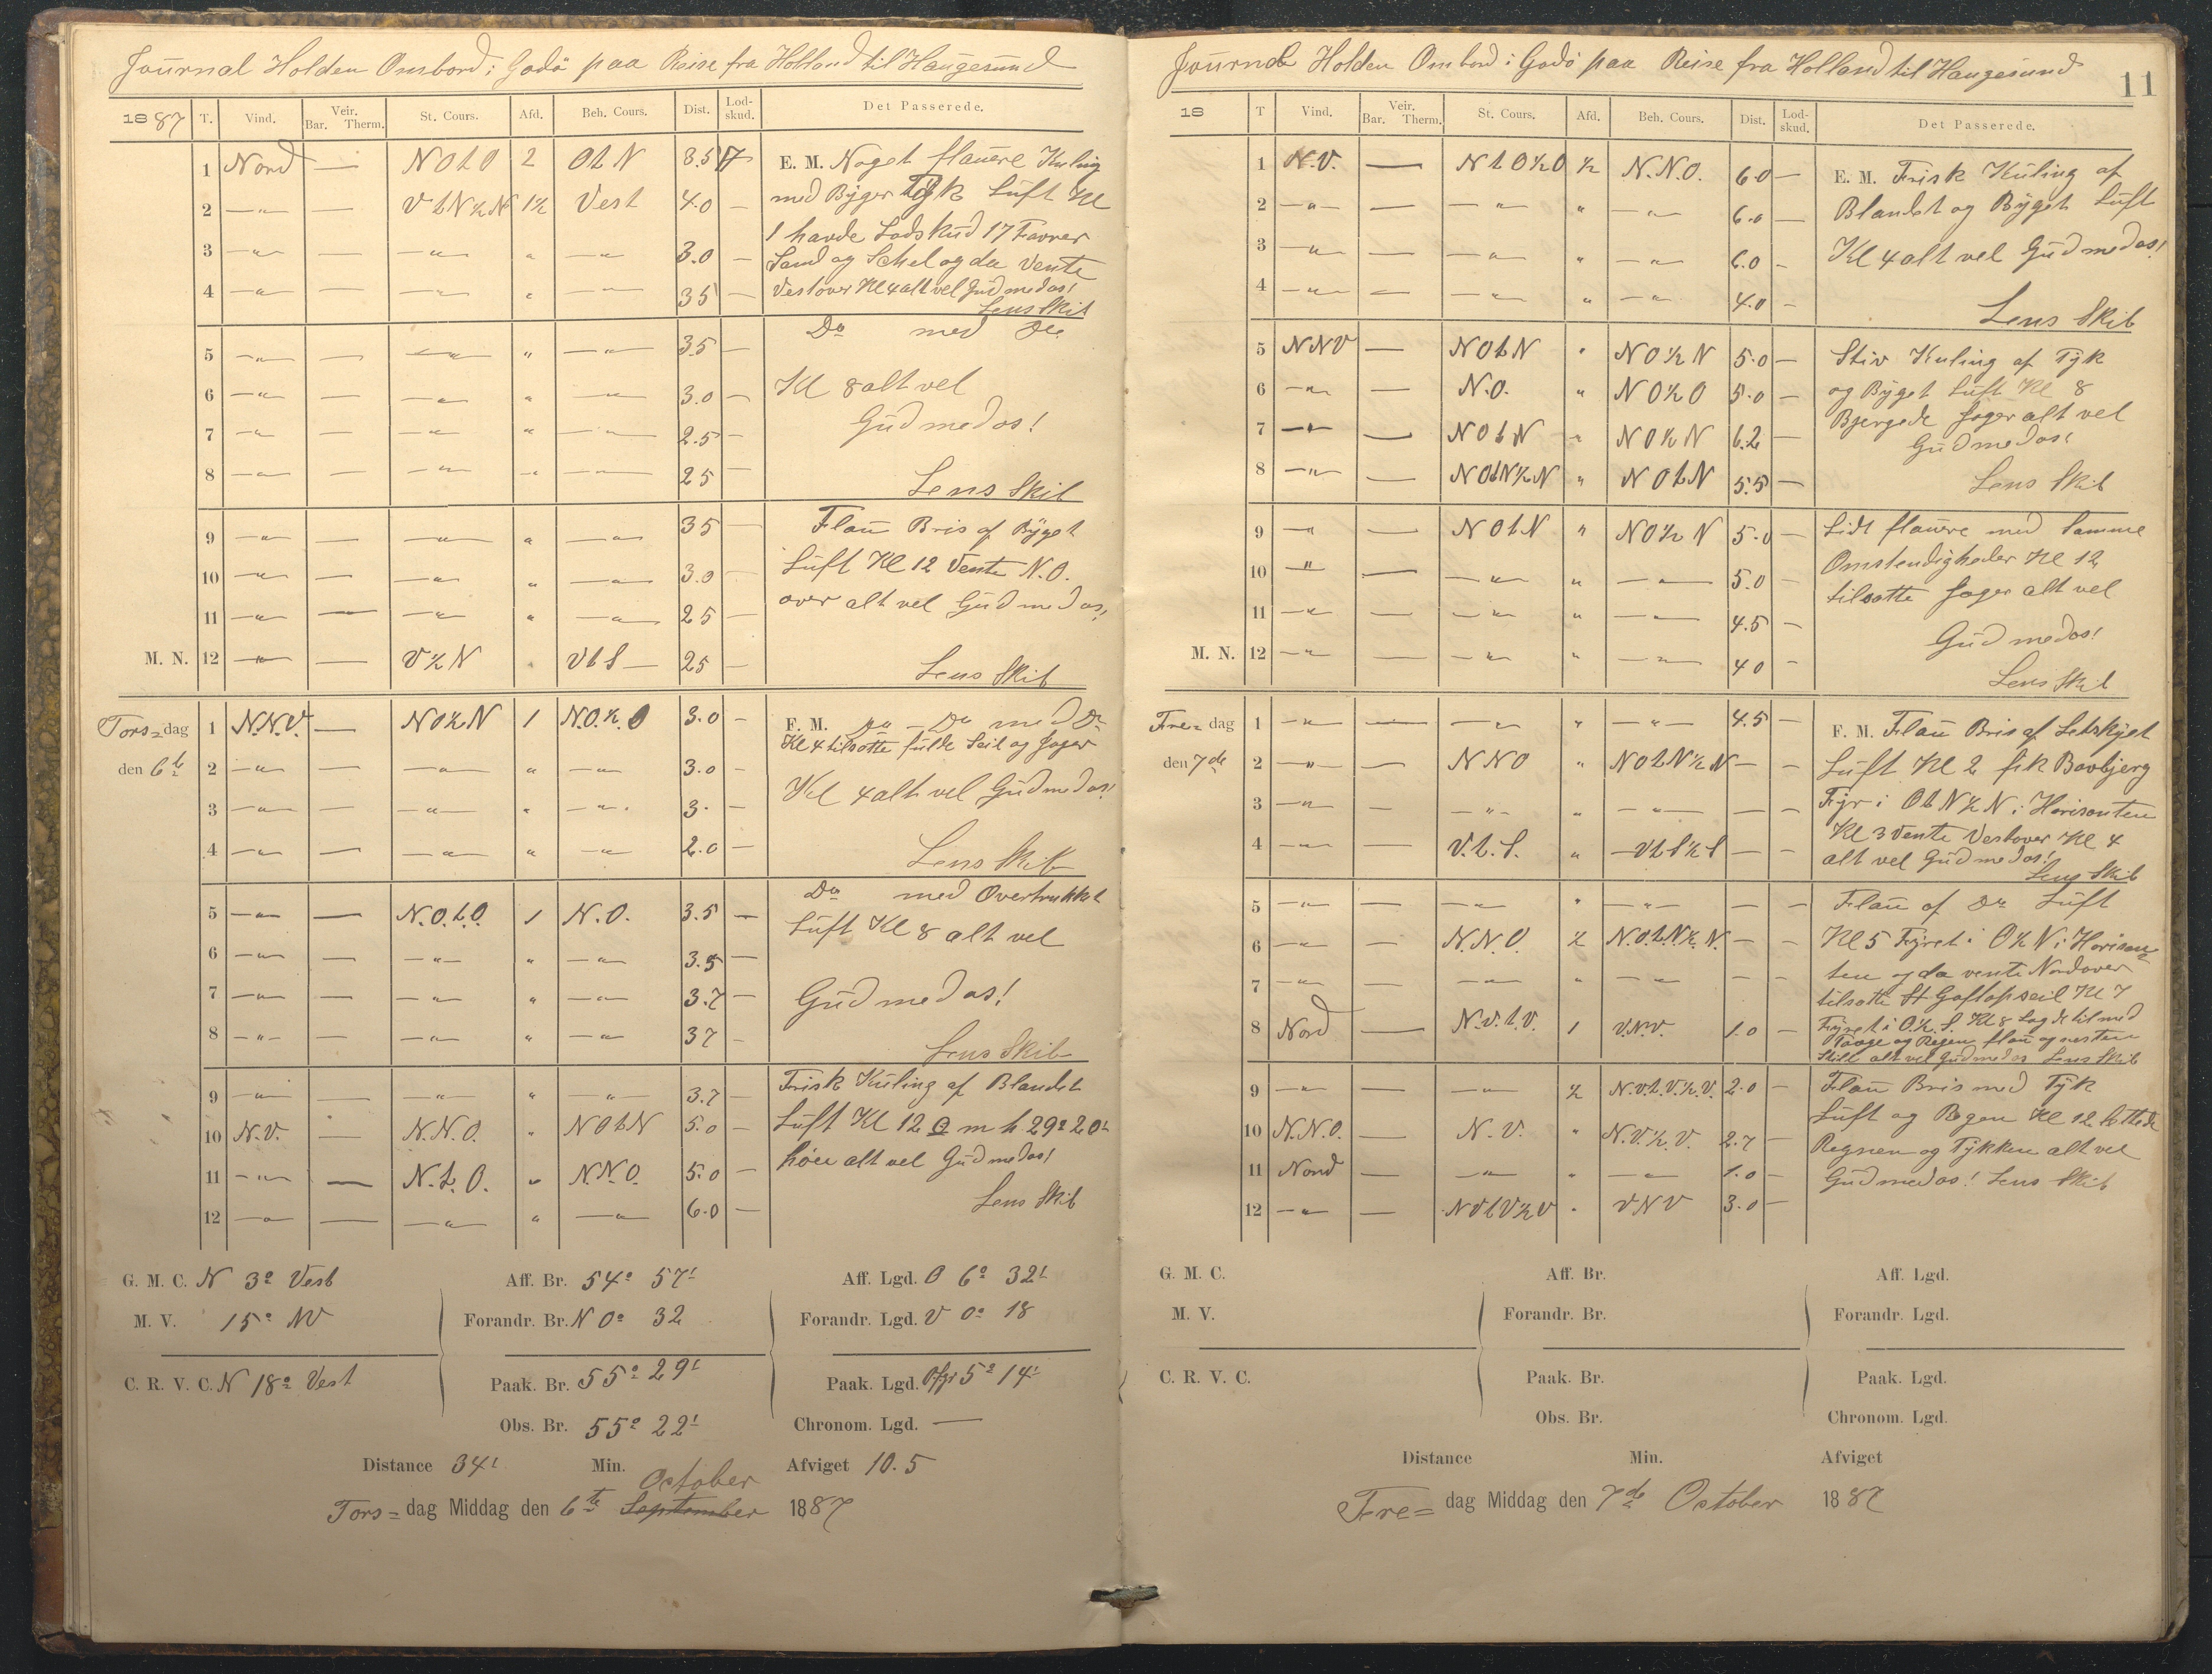 Journal Holden Ombord i Godö paa Reise fra Holland til Haugesund
1887 T. Vind. Veir. Bar. Therm. St. Cours. Afd. Beh. Cours. Dist. Lod-skud. Det Passerede.
1 Nord — N O t O 2 O t N 3.5 17 E. M. Noget flauere Kuling
2 —"— — V t N ½ N 1½ Vest 4.0 — med Byger Tyk Luft Kl
1 havde Lodskud 17 Favner
3 —"— — —"— " —"— 3.0 — Sand og Schel og da Vente
4 —"— — —"— " —"— 3 5 — Vestover Kl 4 alt vel Gud med os!
Lens Skib
Do med Do
5 —"— — —"— " —"— 3.5 —
6 —"— — —"— " —"— 3.0 — Kl 8 alt vel
7 —"— — —"— " —"— 2.5 — Gud med os!
8 —"— — —"— " —"— 2 5 — Lens Skib
9 —"— — —"— " —"— 3 5 — Flau Bris af Byget
10 —"— — —"— " —"— 3.0 — Luft Kl 12 Vente N.O.
11 —"— — —"— " —"— 2 5 — over alt vel Gud med os!
M. N. 12 —"— — V ½ N " V t S — 2 5 — Lens Skib
Tors= dag 1 N.N.V. — N O ½ N 1 N.O. ½ O 3.0 — F. M. Do med Do
Kl 4 tilsatte fulde Seil og Jager
den 6te 2 —"— — —"— " —"— 3.0 —
3 —"— — —"— " —"— 3. — Kl 4 alt vel Gud med os!
4 —"— — —"— " —"— 2.0 — Lens Skib
5 —"— — N.O.t.O. 1 N.O. 3.5 — Do med Overtrukket
6 —"— — —"— " —"— 3.5 — Luft Kl 8 alt vel
7 —"— — —"— " —"— 3.7 — Gud med os!
8 —"— — —"— " —"— 3 7 — Lens Skib
9 —"— — —"— " —"— 3.7 — Frisk Kuling af Blandet
10 N.V. — N.N.O. " N O t N 5.0 — Luft Kl 12 O m h 29° 20'
11 —"— — N.t.O. " N.N.O. 5.0 — høie alt vel Gud med os!
12 —"— — —"— " —"— 6.0 — Lens Skib
G. M. C. N 3° Vest Aff. Br. 54° 57' Aff. Lgd. O 6° 32'
M. V. 15° NV Forandr. Br. N 0° 32 Forandr. Lgd. V 0° 18
C. R. V. C. N 18° Vest Paak. Br. 55° 29' Paak. Lgd. 5° 14'
Obs. Br. 55° 22' Chronom. Lgd. —
Distance 34' Min. Afviget 10.5
October
Tors= dag Middag den 6te September 1887
Journal Holden Ombord i Godö paa Reise fra Holland til Haugesund
11
18 T Vind. Veir. Bar. Therm. St. Cours. Afd. Beh. Cours. Dist. Lod-skud. Det Passerede.
1 N.V. — N t O ½ O ½ N.N.O. 6.0 — E. M. Frisk Kuling af
2 —"— — —"— " —"— 6.0 — Blandet og Byget Luft
3 —"— — —"— " —"— 6.0 — Kl 4 alt vel Gud med os!
4 —"— — —"— " —"— 4.0 — Lens Skib
5 N N V — N O t N " N O ½ N 5.0 — Stiv Kuling af Tyk
6 —"— — N.O. " N O ½ O 5.0 — og Byget Luft Kl 8
7 —"— — N O t N " N O ½ N 6.2 — Bjergede Jager alt vel
Gud med os!
8 —"— — N O t N ½ N " N O t N 5.5 — Lens Skib
9 —"— — N O t N " N O ½ N 5.0 — Lidt flauere med Samme
10 —"— — —"— " —"— 5.0 — Omstendigheder Kl 12
tilsatte Jager alt vel
11 —"— — —"— " —"— 4.5 — Gud med os!
M. N. 12 —"— — —"— " —"— 4 0 — Lens Skib
Fre= dag 1 —"— — —"— " —"— 4.5 — F. M. Flau Bris af Letskyet
den 7de 2 —"— — N N O " N O t N ½ N — — Luft Kl 2 fik Bovbjerg
3 —"— — —"— " —"— — — Fyr i O t N ½ N i Horisonten
Kl 3 Vente Vestover Kl 4
4 —"— — V.t.S. " V t S ½ S — — alt vel Gud med os!
Lens Skib
5 —"— — —"— " —"— — — Flau af Do Luft
6 —"— — N.N.O. ½ N.O.t.N.½ N. — — Kl 5 Fyret i O ½ N i Horison=
7 —"— — —"— " —"— — — ten og da vente Nordover
tilsatte St Gaftopseil Kl 7
8 Nord — N.V.t.V. 1 V.N.V. 1.0 — Fyret i O.½.S. Kl 8 Lagde til med
Taage og Regen flau og nesten
Stille alt vel Gud med os Lens Skib
9 —"— — —"— ½ N.V.t.V.½.V. 2.0 — Flau Bris med Tyk
Luft og Regen Kl 12 lettede
10 N.N.O. — N.V. " N.V.½.V. 2.7 — Regnen og Tykken alt vel
11 Nord — —"— " —"— 1.0 — Gud med os! Lens Skib
12 —"— — N V t V ½ V " V N V 3.0 —
G. M. C. Aff. Br. Aff. Lgd.
M. V. Forandr. Br. Forandr. Lgd.
C. R. V. C. Paak. Br. Paak. Lgd.
Obs. Br. Chronom. Lgd.
Distance Min. Afviget
Fre= dag Middag den 7de October 1887